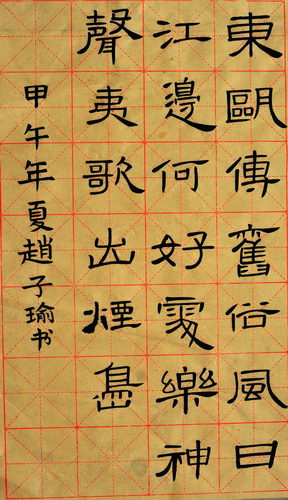 東甌傳舊俗風日
江邊何好處樂神
聲夷歌出煙島
甲午年夏趙子瑜书